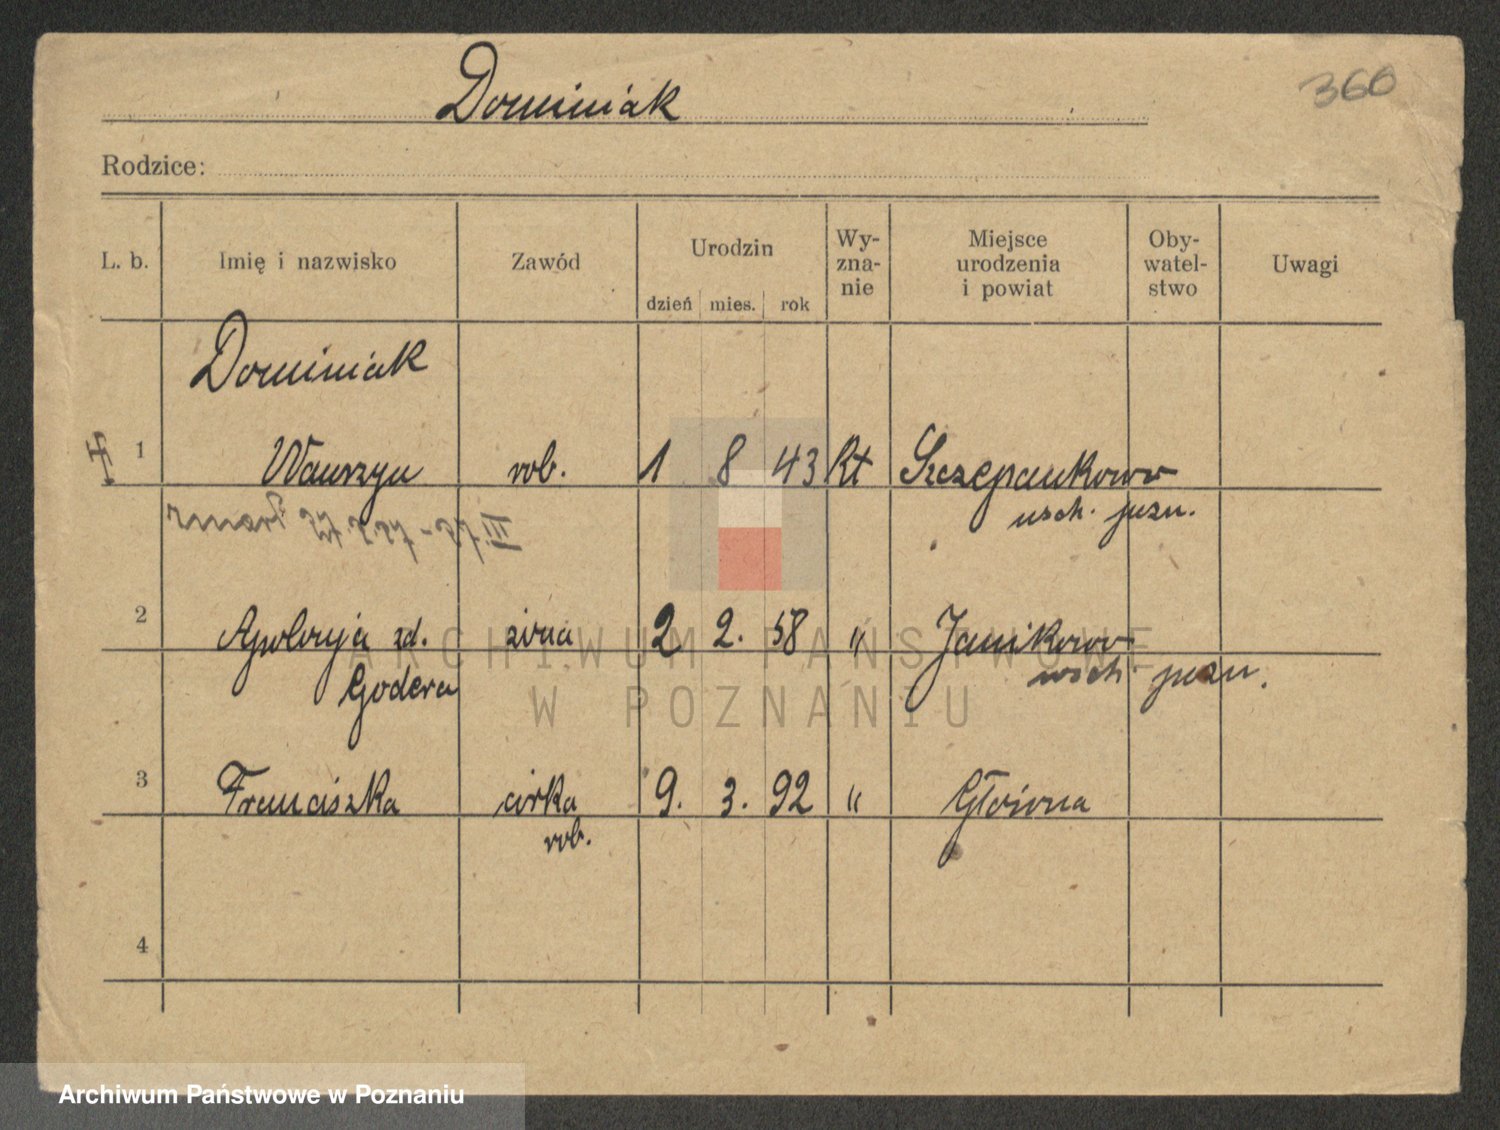 Dominiak
360
Rodzice:
L. b. Imię i nazwisko Zawód Urodzin dzień mies. rok Wy-zna-nie Miejsce urodzenia i powiat Oby-watel-stwo Uwagi
Dominiak
1 Wawrzyn rob. 1 8 43 Kt Szczepankowo
wsch. pozn.
2 Apolonja zd. żona 2 2. 58 " Janikowo
Godera wsch. pozn.
3 Franciszka córka 9. 3. 92 " Główna
rob.
4
ARCHIWUM PAŃSTWOWE
W POZNANIU
Archiwum Państwowe w Poznaniu